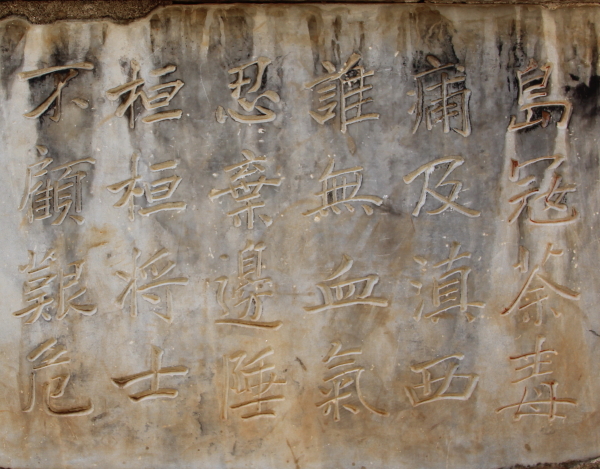 島寇荼毒
痛及滇西
誰無血氣
忍棄邊陲
桓桓将士
不顧艱危